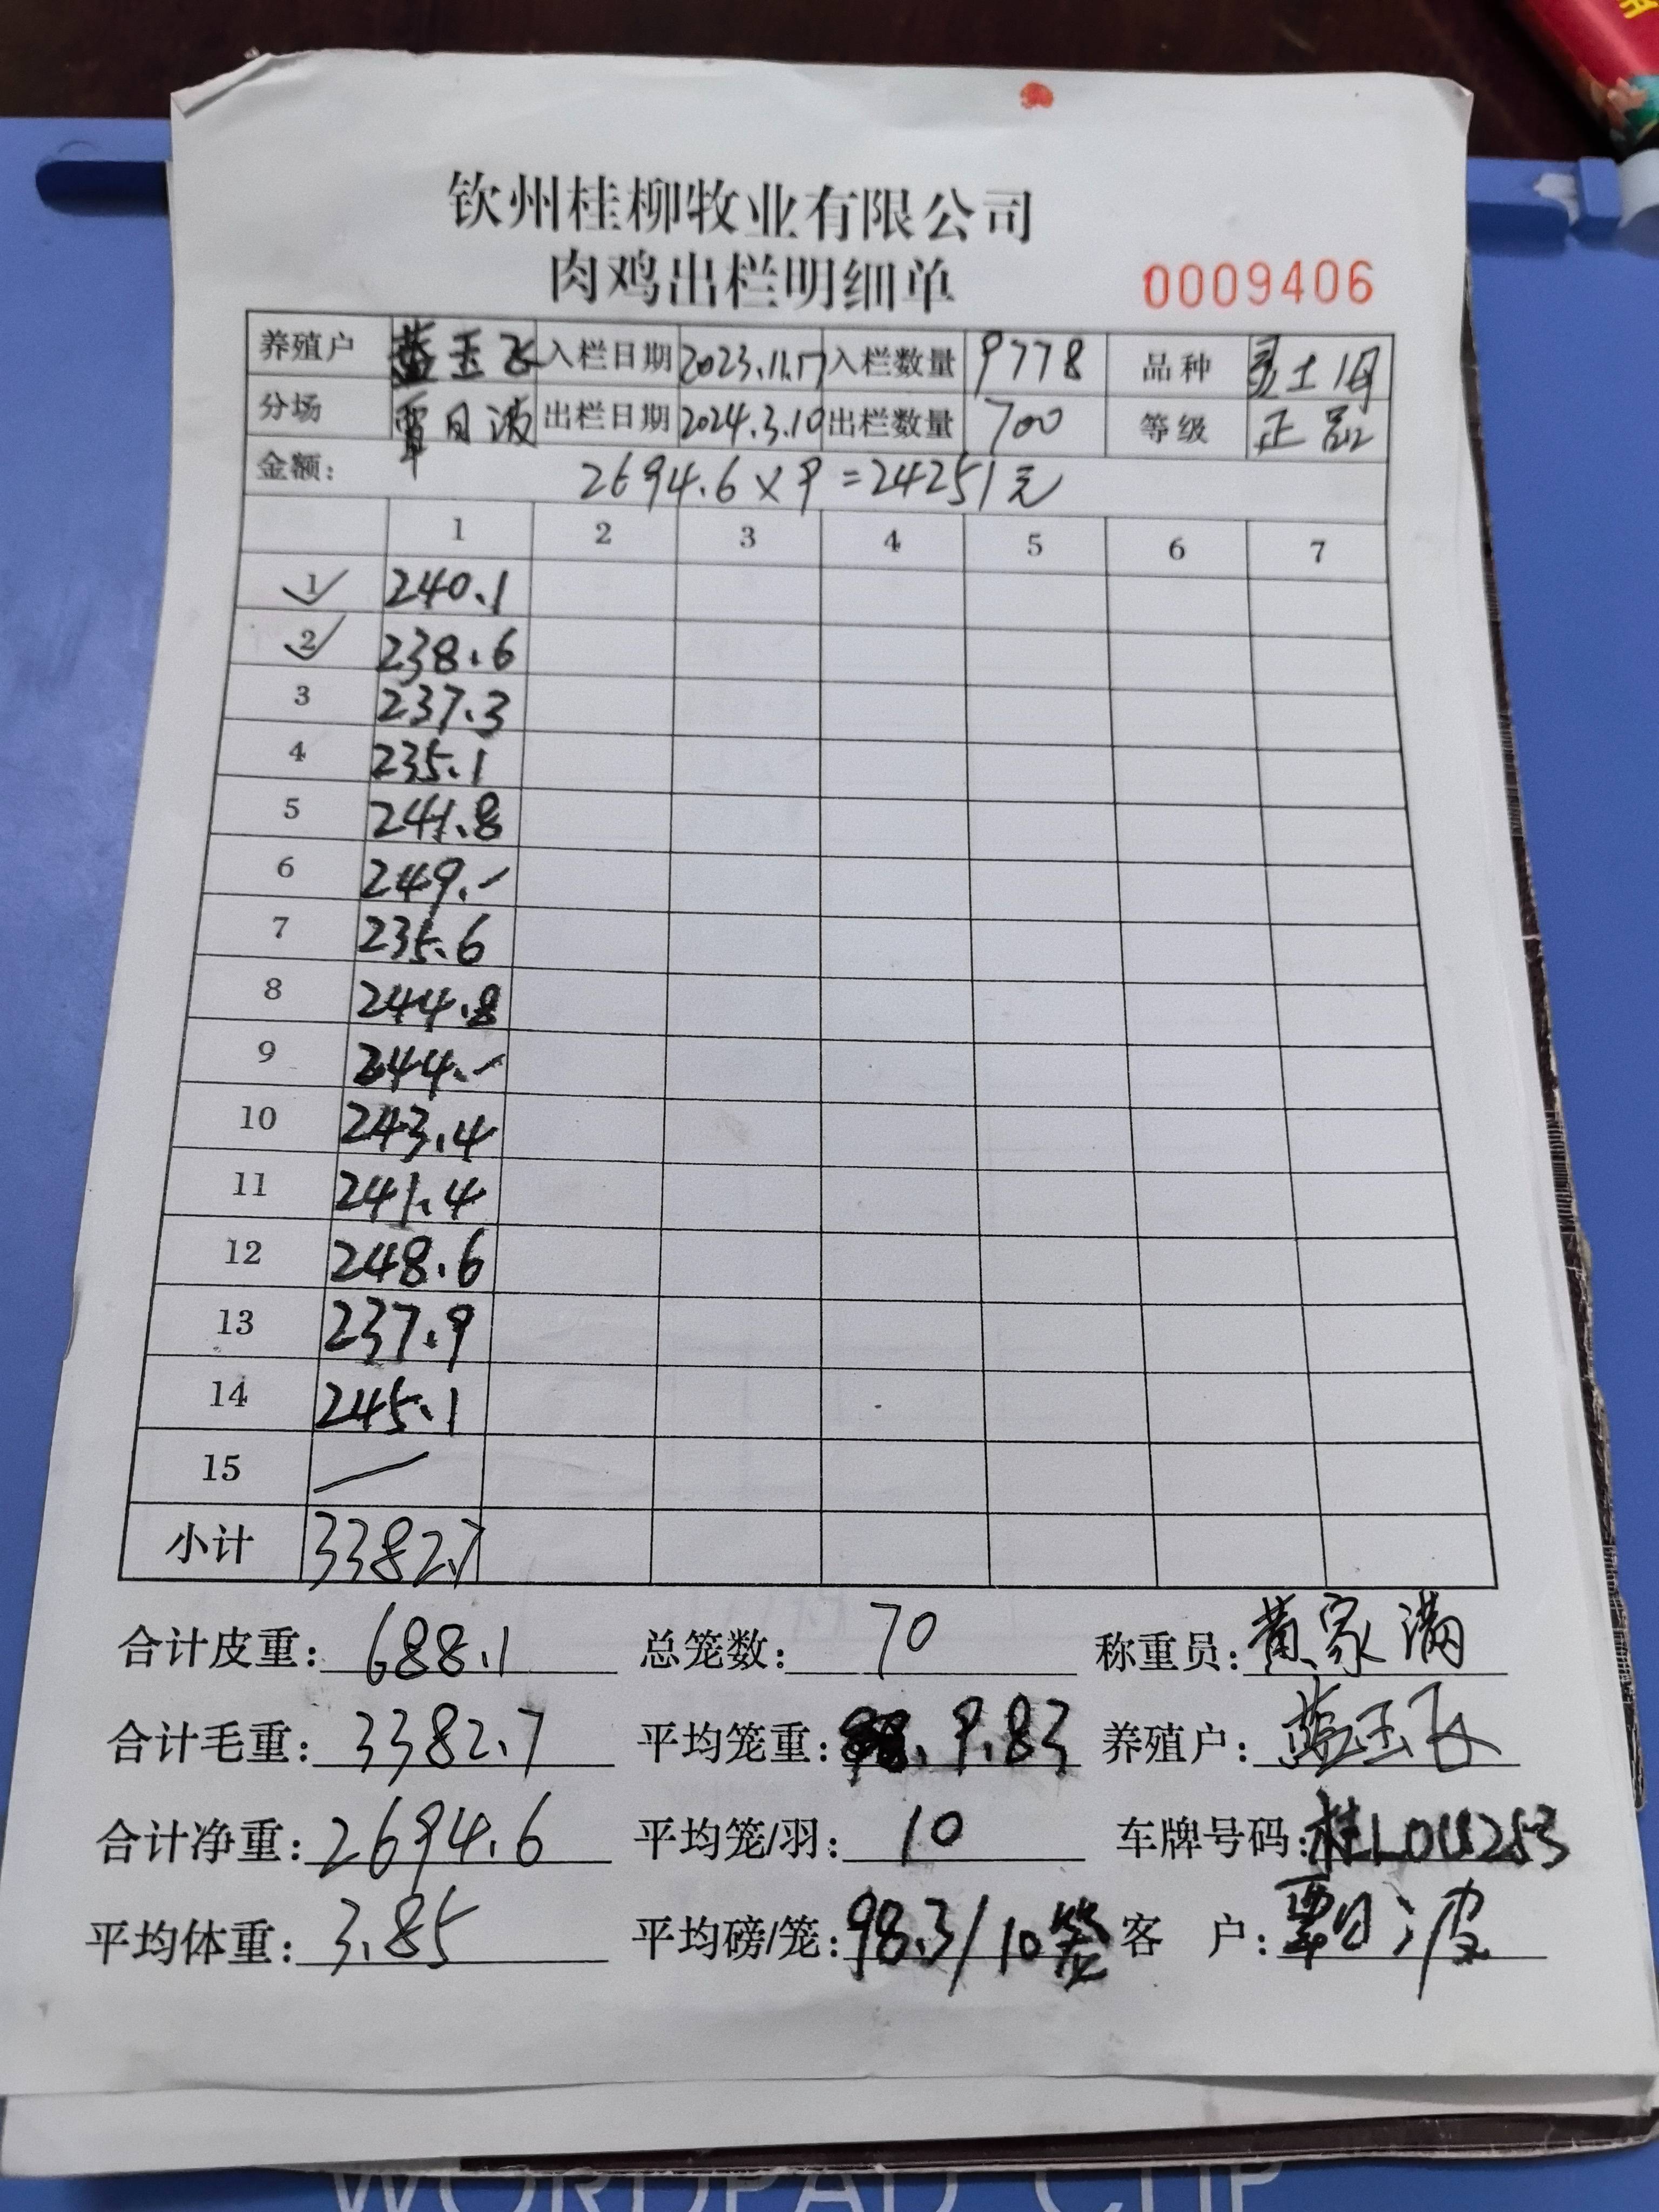 钦州桂柳牧业有限公司
肉鸡出栏明细单
0009406
养殖户 蓝玉飞 入栏日期 2023.11.17 入栏数量 9778 品种 土
分场 覃日波 出栏日期 2024.3.10 出栏数量 700 等级 正品
金额: 2694.6×9=24251元
1 2 3 4 5 6 7
1 240.1
2 238.6
3 237.3
4 235.1
5 241.8
6 249.-
7 235.6
8 244.8
9 244.-
10 243.4
11 241.4
12 248.6
13 237.9
14 245.1
15 /
小计 3382.7
合计皮重: 688.1 总笼数: 70 称重员: 黄家满
合计毛重: 3382.7 平均笼重: 9.83 养殖户: 蓝玉飞
合计净重: 2694.6 平均笼/羽: 10 车牌号码:
平均体重: 3.85 平均磅/笼: 98.3/10 客 户: 覃日波
WORDPAD CLIP